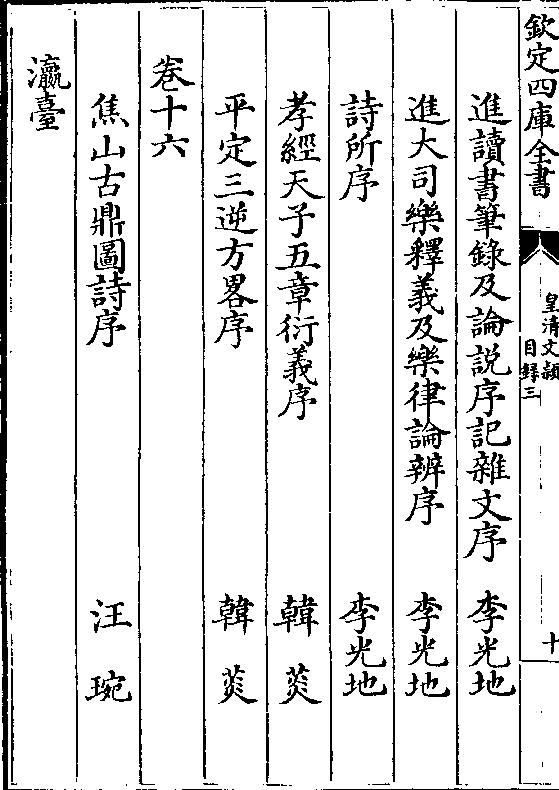 欽定四庫全書
皇清文穎
目録三
十
進讀書筆錄及論説序記雜文序 李光地
進大司樂釋義及樂律論辨序 李光地
詩所序 李光地
孝經天子五章衍義序 韓菼
平定三逆方畧序 韓菼
卷十六
焦山古鼎圖詩序 汪琬
瀛臺